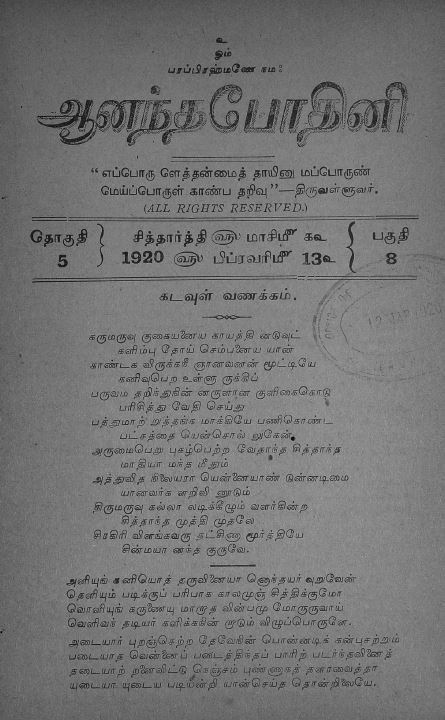 உ
ஓம்
பரப்பிரஹ்மணே நம:
ஆனந்தபோதினி
“எப்பொரு ளெத்தன்மைத் தாயினு மப்பொருண்
மெய்ப்பொருள் காண்ப தறிவு”—திருவள்ளுவர்.
(ALL RIGHTS RESERVED.)
தொகுதி 5 } சித்தார்த்தி ௵ மாசிமீ க௨ { பகுதி 8
1920 ௵ பிப்ரவரிமீ 13௨
கடவுள் வணக்கம்.
கருமருவு குகையனைய காயத்தி னடுவுட்
களிம்பு தோய் செம்பனைய யான்
காண்டக விருக்கநீ ஞானவனன் மூட்டியே
கனிவுபெற உள்ளு ருக்கிப்
பருவம தறிந்துநின் னருளான குளிகைகொடு
பரிசித்து வேதி செய்து
பத்துமாற் றுத்தங்க மாக்கியே பணிகொண்ட
பட்சத்தை யென்சொல் லுகேன்
அருமைபெறு புகழ்பெற்ற வேதாந்த சித்தாந்த
மாதியா மந்த மீதும்
அத்துவித நிலையரா யென்னையாண் டுன்னடிமை
யானவர்க ளறிவி னூடும்
திருமருவு கல்லா லடிக்கீழும் வளர்கின்ற
சித்தாந்த முத்தி முதலே
சிரகிரி விளங்கவரு தட்சிணா மூர்த்தியே
சின்மயா னந்த குருவே.
அளியுங் கனியொத் தருவினையா னொந்தயர் வுறுவேன்
தெளியும் படிக்குப் பரிபாக காலமுஞ் சித்திக்குமோ
வொளியுங் கருணையு மாறாத வின்பமு மோருருவாய்
வெளிவந் தடியர் களிக்கநின் றாடும் விழுப்பொருளே.
அடையார் புறஞ்செற்ற தேவேநின் பொன்னடிக் கன்புசற்றும்
படையாத வென்னைப் படைத்திந்தப் பாரிற் படர்ந்தவினைத்
தடையாற் றளையிட்டு நெஞ்சம் புண்ணாகத் தளரவைத்தா
யுடையா யுடைய படியன்றி யான்செய்த தொன்றிலையே.